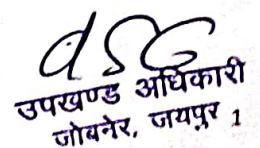 उपखण्ड अधिकारी
जोबनेर, जयपुर 1